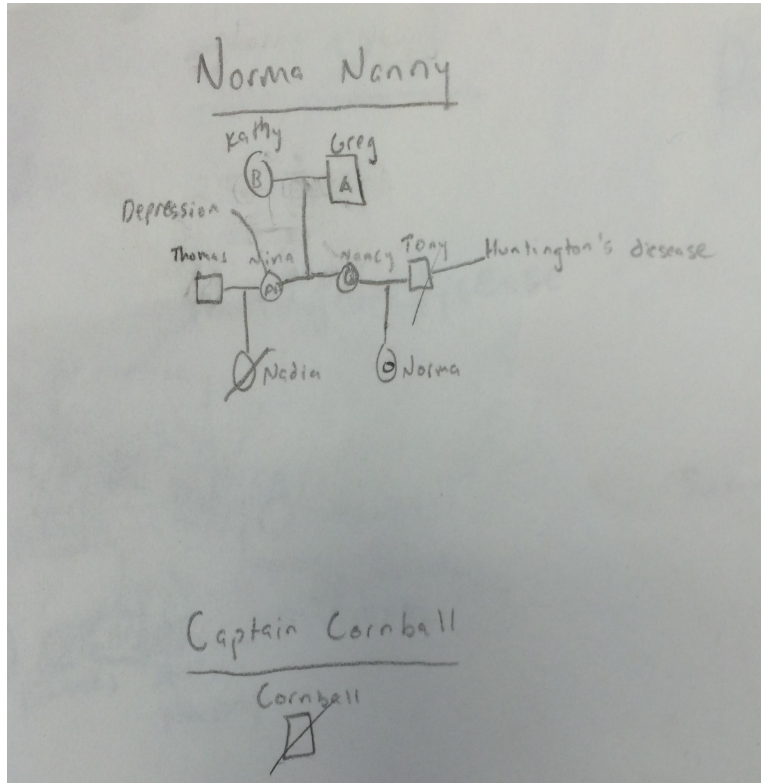 Norma Nanny
Kathy Greg
B A
Depression
Thomas Nina Nancy Tony Huntington's diesease
A
Nadia O Norma
Captain Cornball
Cornball